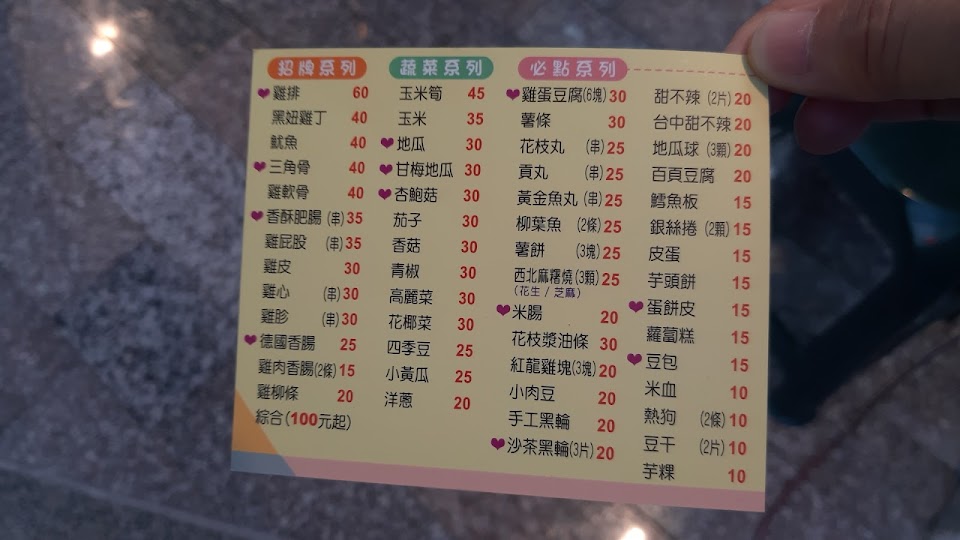 招牌系列
❤雞排 60
黑妞雞丁 40
魷魚 40
❤三角骨 40
雞軟骨 40
❤香酥肥腸(串)35
雞屁股 (串)35
雞皮 30
雞心 (串)30
雞胗 (串)30
❤德國香腸 25
雞肉香腸(2條)15
雞柳條 20
綜合(100元起)
蔬菜系列
玉米筍 45
玉米 35
❤地瓜 30
❤甘梅地瓜 30
❤杏鮑菇 30
茄子 30
香菇 30
青椒 30
高麗菜 30
花椰菜 30
四季豆 25
小黃瓜 25
洋蔥 20
必點系列
❤雞蛋豆腐(6塊)30
薯條 30
花枝丸 (串)25
貢丸 (串)25
黃金魚丸(串)25
柳葉魚 (2條)25
薯餅 (3塊)25
西北麻糬燒(3顆)25
(花生/芝麻)
❤米腸 20
花枝漿油條 30
紅龍雞塊(3塊)20
小肉豆 20
手工黑輪 20
❤沙茶黑輪(3片)20
甜不辣 (2片)20
台中甜不辣20
地瓜球 (3顆)20
百頁豆腐 20
鱈魚板 15
銀絲捲 (2顆)15
皮蛋 15
芋頭餅 15
❤蛋餅皮 15
蘿蔔糕 15
❤豆包 15
米血 10
熱狗 (2條)10
豆干 (2片)10
芋粿 10